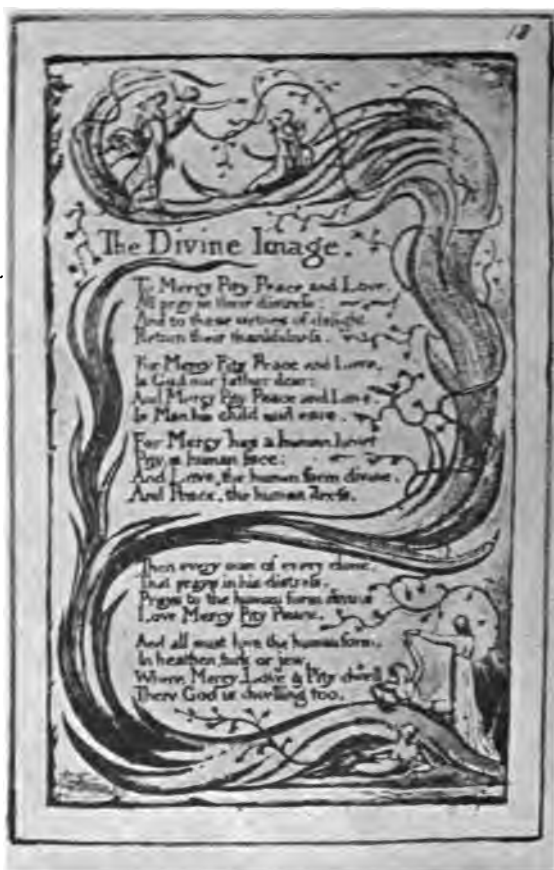 18
The Divine Image.
To Mercy Pity Peace and Love,
All pray in their distress:
And to these virtues of delight
Return their thankfulness.
For Mercy Pity Peace and Love,
Is God our father dear:
And Mercy Pity Peace and Love,
Is Man his child and care.
For Mercy has a human heart
Pity, a human face:
And Love, the human form divine,
And Peace, the human dress.
Then every man of every clime,
That prays in his distress,
Prays to the human form divine
Love Mercy Pity Peace.
And all must love the human form,
In heathen, turk or jew.
Where Mercy, Love & Pity dwell,
There God is dwelling too.